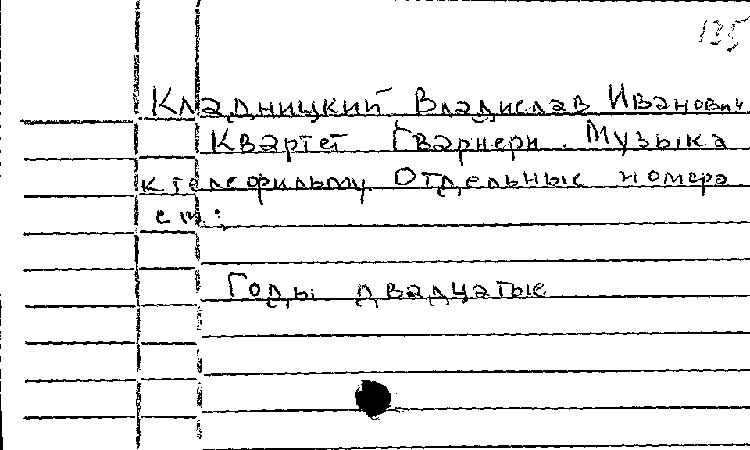 135
Кладницкий Владислав Иванович
Квартет Гварнери. Музыка
к телефильму. Отдельные номера
см:
Годы двадцатые